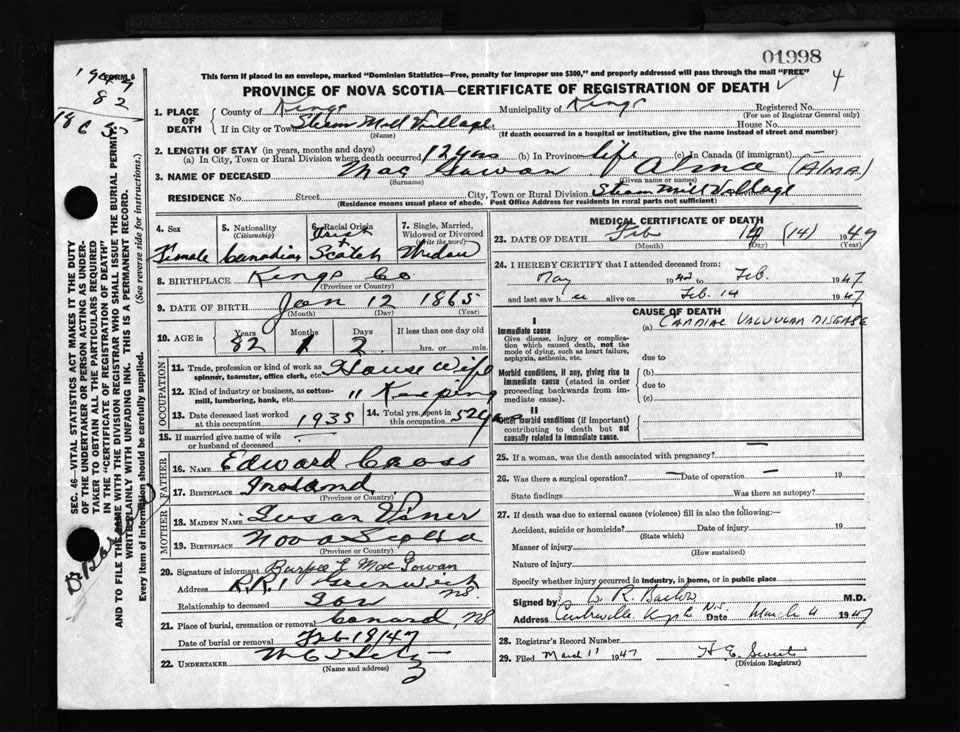 01998
FORM 6
1947
82
This form if placed in an envelope, marked "Dominion Statistics—Free, penalty for improper use $300," and properly addressed will pass through the mail "FREE"
4
PROVINCE OF NOVA SCOTIA—CERTIFICATE OF REGISTRATION OF DEATH
1. PLACE OF DEATH
County of Kings
Municipality of Kings
Registered No.
(For use of Registrar General only)
If in City or Town Steam Mill Village
House No.
(Name)
(If death occurred in a hospital or institution, give the name instead of street and number)
2. LENGTH OF STAY (in years, months and days)
(a) In City, Town or Rural Division where death occurred 12 yrs (b) In Province life (c) In Canada (if immigrant) —
3. NAME OF DECEASED Mac Gowan Alma (ALMA)
(Surname) (Given name or names)
RESIDENCE No. Street City, Town or Rural Division Steam Mill Village
(Residence means usual place of abode. Post Office Address for residents in rural parts not sufficient)
4. Sex
Female
5. Nationality
(Citizenship)
Canadian
6. Racial Origin
Irish + Scotch
7. Single, Married, Widowed or Divorced
(Write the word)
Widow
8. BIRTHPLACE Kings Co
(Province or Country)
9. DATE OF BIRTH Jan 12 1865
(Month) (Day) (Year)
10. AGE in
Years Months Days
82 1 2
If less than one day old
hrs. or min.
OCCUPATION
11. Trade, profession or kind of work as spinner, teamster, office clerk, etc. House Wife
12. Kind of industry or business, as cotton-mill, lumbering, bank, etc. " Keeping
13. Date deceased last worked at this occupation 1935
14. Total yrs. spent in this occupation 52 yrs
15. If married give name of wife or husband of deceased
FATHER
16. NAME Edward Cross
17. BIRTHPLACE Ireland
(Province or Country)
MOTHER
18. MAIDEN NAME Susan
19. BIRTHPLACE Nova Scotia
(Province or Country)
20. Signature of informant Burpee L Mac Gowan
Address R.R.1 Greenwich NS.
Relationship to deceased Son
21. Place of burial, cremation or removal Canard, NS
Date of burial or removal Feb 18/47
22. UNDERTAKER
(Name and address)
MEDICAL CERTIFICATE OF DEATH
23. DATE OF DEATH Feb 14 (14) 1947
(Month) (Day) (Year)
24. I HEREBY CERTIFY that I attended deceased from:
May 1942 to Feb. 1947
and last saw her alive on Feb. 14 1947
CAUSE OF DEATH
I
Immediate cause
Give disease, injury or complication which caused death, not the mode of dying, such as heart failure, asphyxia, asthenia, etc.
(a) CARDIAC VALVULAR DISEASE
due to
Morbid conditions, if any, giving rise to immediate cause (stated in order proceeding backwards from immediate cause).
(b)
due to
(c)
II
Other morbid conditions (if important) contributing to death but not causally related to immediate cause.
25. If a woman, was the death associated with pregnancy? —
26. Was there a surgical operation? — Date of operation — 19
State findings Was there an autopsy?
27. If death was due to external causes (violence) fill in also the following:—
Accident, suicide or homicide? Date of injury 19
(State which)
Manner of injury
(How sustained)
Nature of injury
Specify whether injury occurred in industry, in home, or in public place
Signed by M.D.
Address Centreville Kings Co N.S. Date March 4 1947
28. Registrar's Record Number
29. Filed March 11 1947
(Division Registrar)
SEC. 46—VITAL STATISTICS ACT MAKES IT THE DUTY OF THE UNDERTAKER OR PERSON ACTING AS UNDERTAKER TO OBTAIN ALL THE PARTICULARS REQUIRED IN THE "CERTIFICATE OF REGISTRATION OF DEATH" AND TO FILE THE SAME WITH THE DIVISION REGISTRAR WHO SHALL ISSUE THE BURIAL PERMIT.
WRITE PLAINLY WITH UNFADING INK. THIS IS A PERMANENT RECORD.
Every item of information should be carefully supplied. (See reverse side for instructions.)